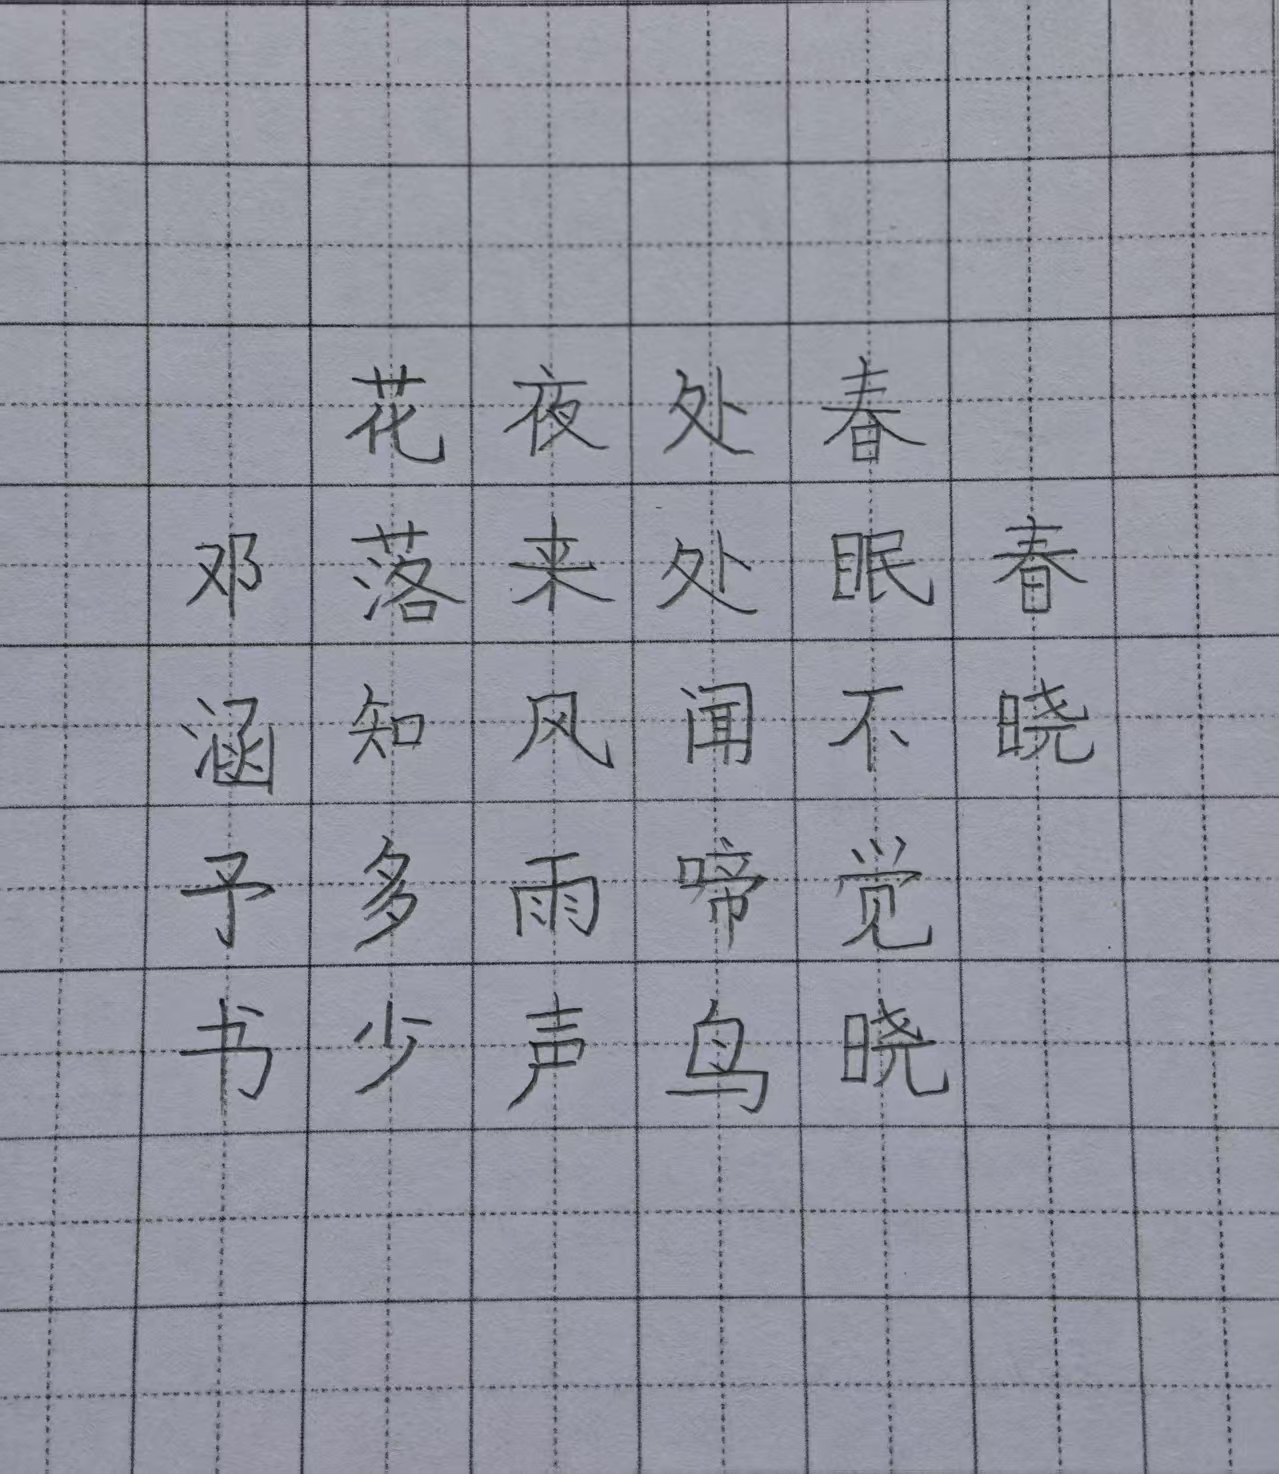 春晓
春眠不觉晓
处处闻啼鸟
夜来风雨声
花落知多少
邓涵予书